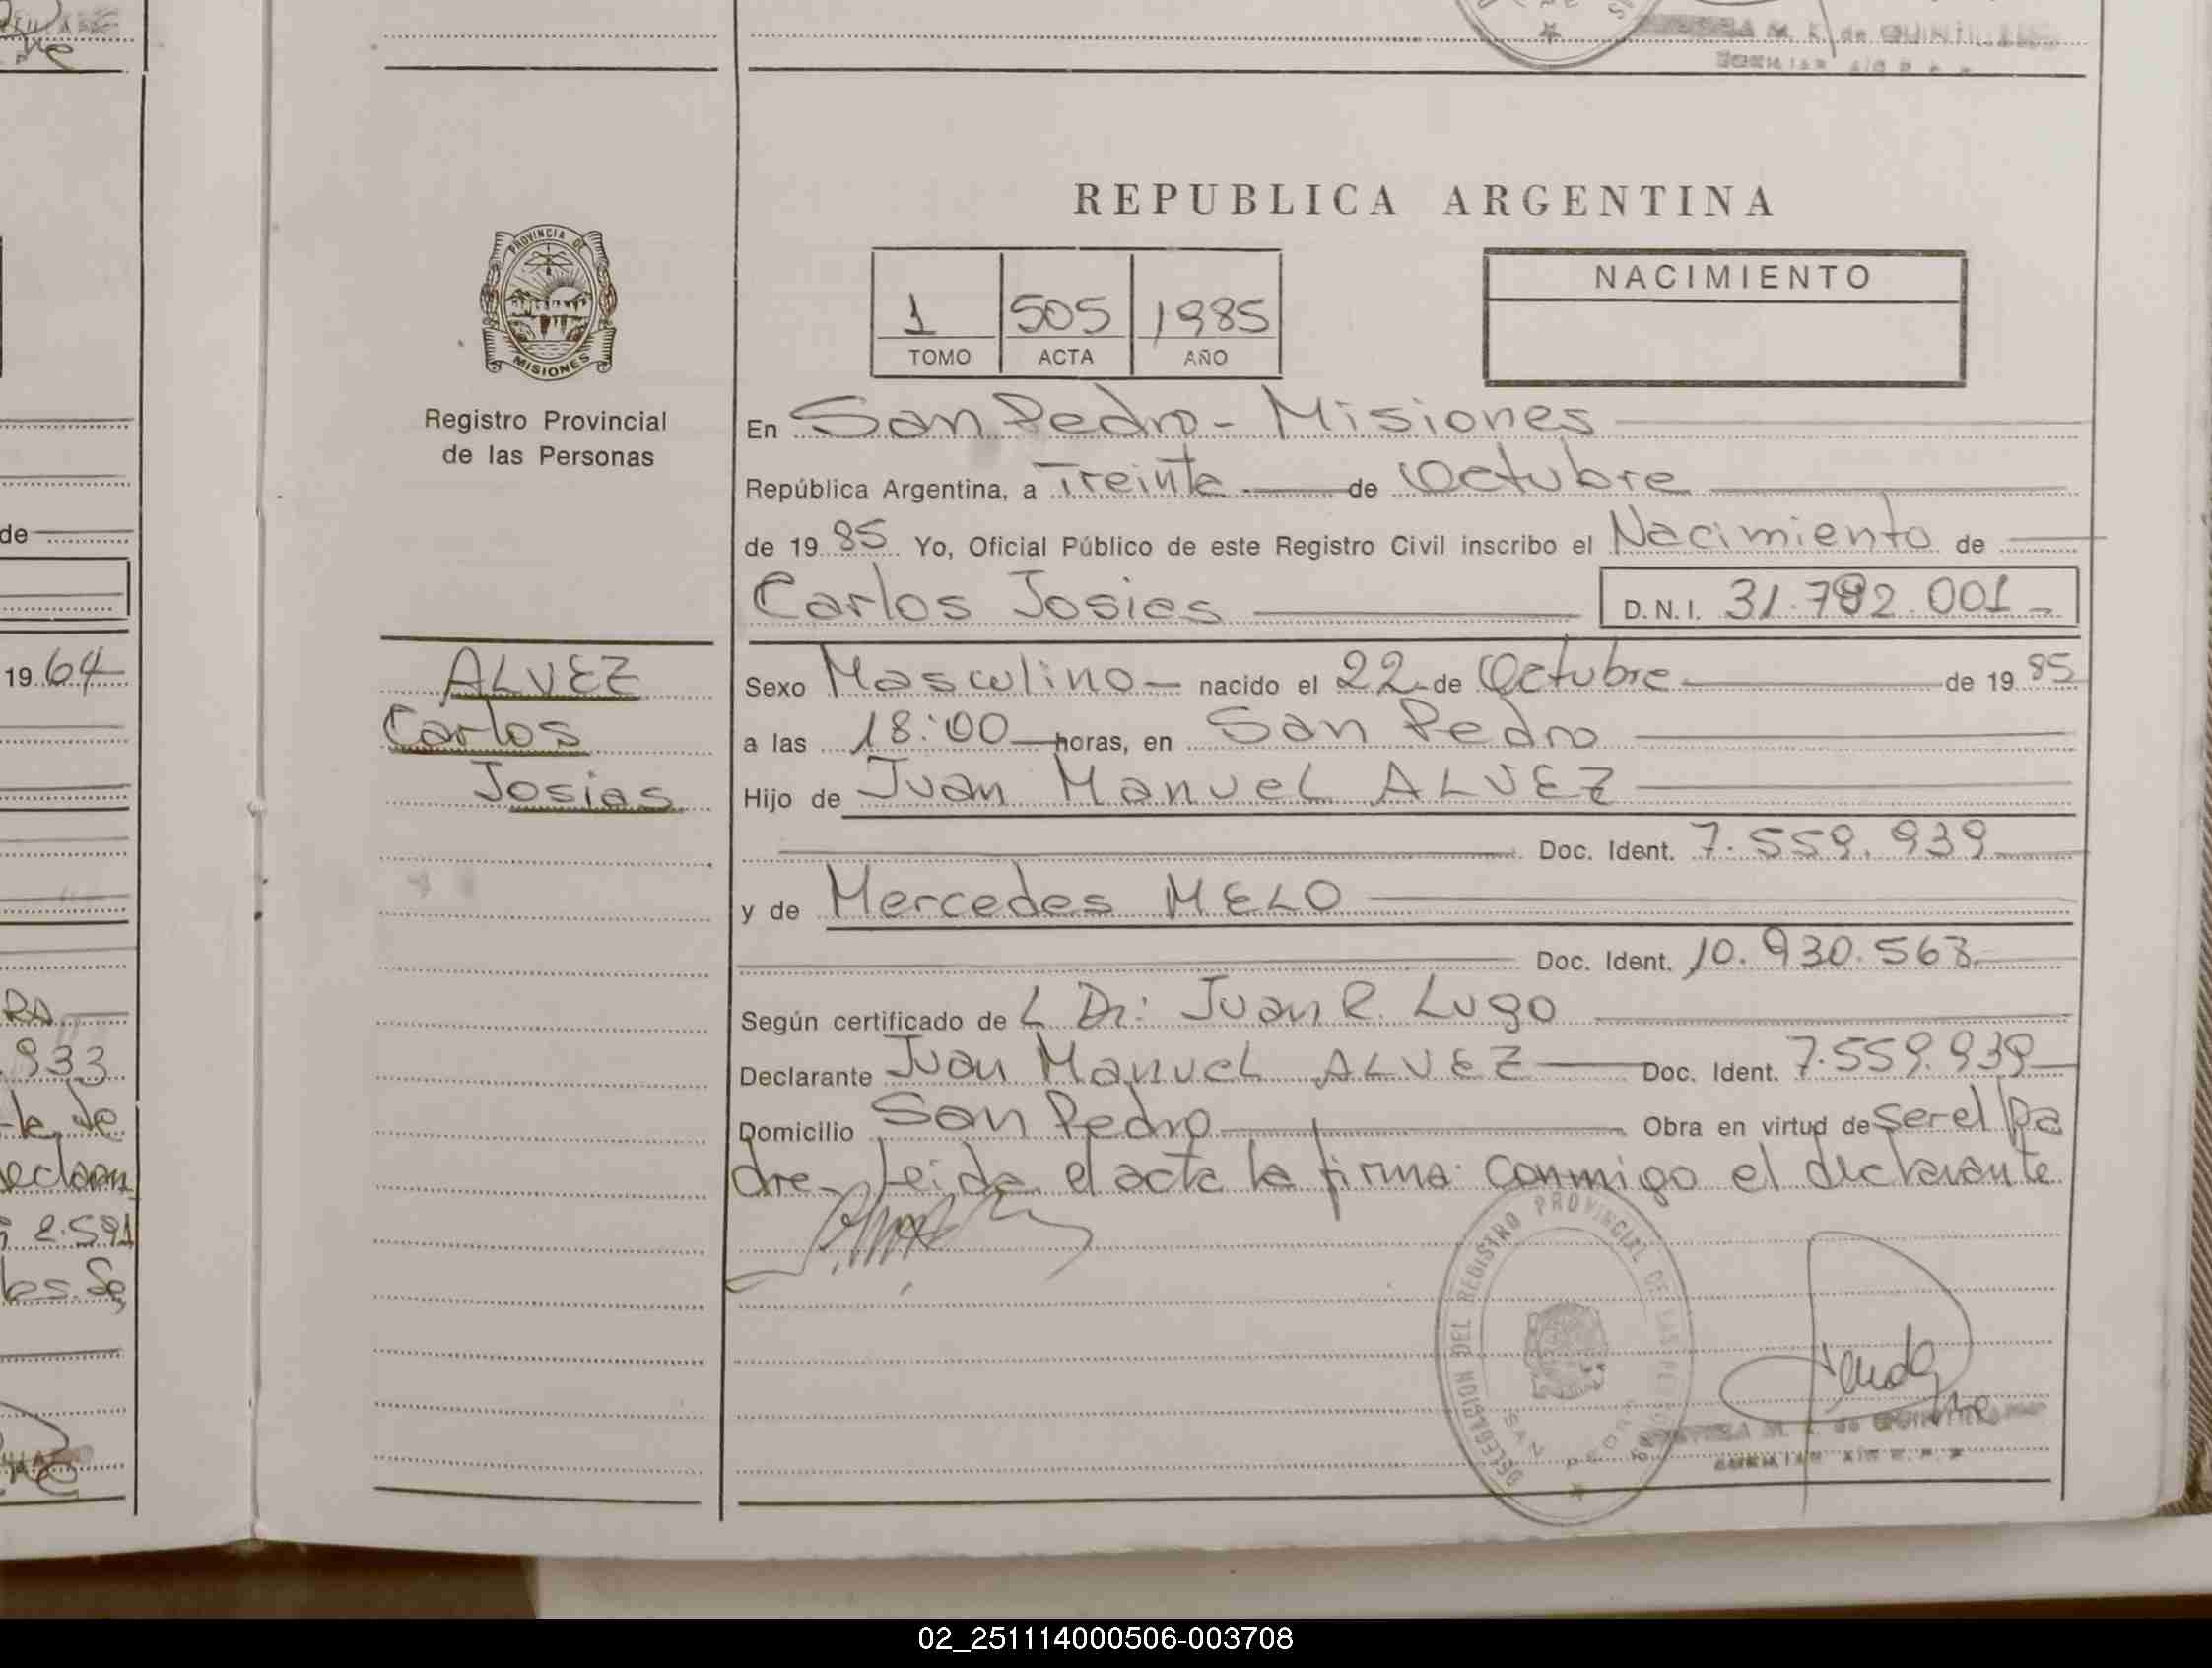 REPUBLICA ARGENTINA
PROVINCIA DE
MISIONES
Registro Provincial
de las Personas
1 505 1985
TOMO ACTA AÑO
NACIMIENTO
En San Pedro - Misiones
República Argentina, a Treinta de Octubre
de 1985 Yo, Oficial Público de este Registro Civil inscribo el Nacimiento de
Carlos Josias D.N.I. 31.792.001
ALVEZ
Carlos
Josias
Sexo Masculino nacido el 22 de Octubre de 1985
a las 18:00 horas, en San Pedro
Hijo de Juan Manuel ALVEZ
Doc. Ident. 7.559.939
y de Mercedes MELO
Doc. Ident. 10.930.563
Según certificado de L Dr: Juan R. Lugo
Declarante Juan Manuel ALVEZ Doc. Ident. 7.559.939
Domicilio San Pedro Obra en virtud de ser el pa
dre. Leida el acta la firma conmigo el declarante
DELEGACION DEL REGISTRO PROVINCIAL DE LAS
SAN PEDRO
M. E. de
de
1964
933
2.591
02_251114000506-003708